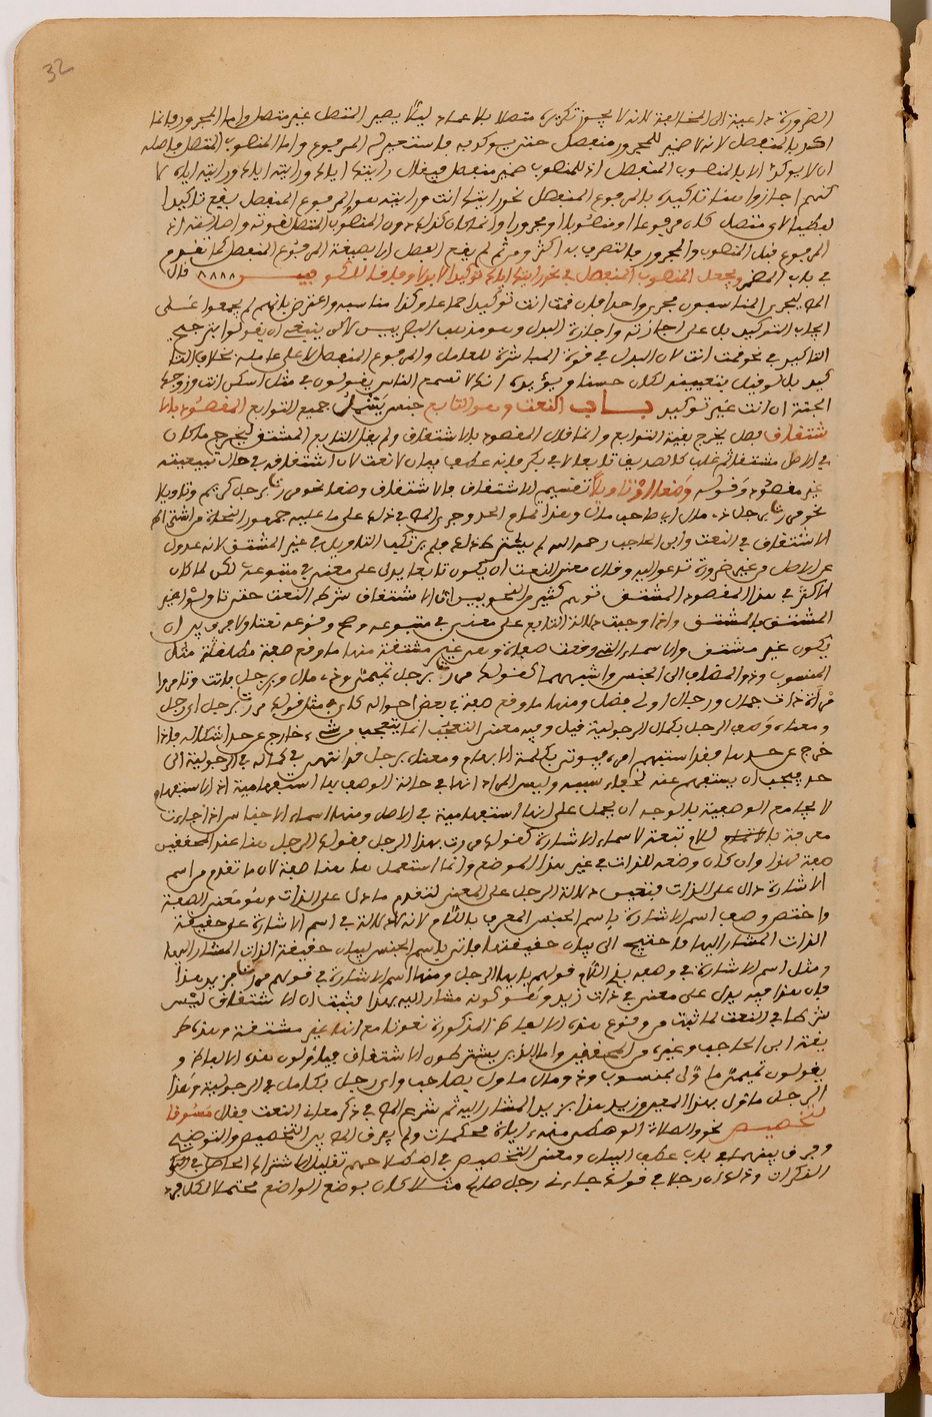 32
الضرورة داعية الى المخالفة لانه لا يجوز تكريره متصلا بلا عماد ليلا يصير المتصل غير متصل واما المجرور فانما
اكد بالمنفصل لانه لا ضمير للمجرور منفصل حتى يوكد به فاستعير له المرفوع واما المنصوب المتصل فاصله
ان لا يوكد الا بالمنصوب المنفصل اذ للمنصوب ضمير منفصل فيقال رايتك اياك ورايته اياه ورايته اياه لا
كنهم اجازوا تاكيده بالمرفوع المنفصل نحو رايتك انت ورايته هو فالمرفوع المنفصل يقع تاكيدا
لفظيا لاي متصل كان مرفوعا او منصوبا او مجرورا وانما كان كذلك دون المنصوب المنفصل لقوته واصالته اذ
المرفوع قبل المنصوب والمجرور فالتصرف به اكثر ومن ثم لم يقع الفصل الا بصيغة المرفوع المنفصل كما تقدم
في باب المضمر ويجعل المنصوب المنفصل في نحو رايتك اياك توكيدا لا بدلا وفاقا للكوفيين قال
المص ليجري المتناسبون مجرى واحدا فان قمت انت توكيد اجماعا وكذا مناسبه واعترض بانهم لم يجمعوا على
ايجاب التوكيد بل على اجازته واجازة البدل وهو مذهب البصريين لاكن ينبغي ان يقولوا بترجيح
التاكيد في نحو قمت انت لان البدل في قوة المباشرة للعامل والمرفوع المنفصل لا يلي عامله بخلاف التا
كيد بل لو قيل بتعيينه لكان حسنا ويؤيده انك لا تسمع الناس يقولون في مثل اسكن انت وزوجك
الجنة ان انت غير توكيد باب النعت وهو التابع جنس يشمل جميع التوابع المقصود بالا
شتقاق فصل يخرج بقية التوابع وانما قال المقصود بالاشتقاق ولم يقل التابع المشتق ليخرج ما كان
في الاصل مشتقا ثم غلب كالصديق تابعا لابي بكر فانه عطف بيان لا نعت لان اشتقاقه في حال تبعيته
غير مقصود وقوله وضعا او تاويلا تقسيم للاشتقاق فالاشتقاق وضعا نحو مررت برجل كريم وتاويلا
نحو مررت برجل ذي مال اي صاحب مال وبهذا تمام الحد وجرى المص في ذلك على ما عليه جمهور النحاة من اشتراط
الاشتقاق في النعت وابن الحاجب رحمه الله لم يلتزم ذلك فلم يرتكب التاويل في غير المشتق لانه عدول
عن الاصل من غير ضرورة تدعو اليه وقال معنى النعت ان يكون تابعا يدل على معنى في متبوعه لكن لما كان
الاكثر في هذا المقصود المشتق توهم كثير من النحويين ان الاشتقاق شرط النعت حتى تاولوا غير
المشتق بالمشتق واذا وجدت دلالة التابع على معنى في متبوعه صح وقوعه نعتا ولا فرق بين ان
يكون غير مشتق والاسماء التي وقعت صفات وهي غير مشتقة منها ما وقع صفة مطلقا مثل
المنسوب وذو المضاف الى الجنس واشبههما كقولك مررت برجل تميمي وذي مال وبرجل مائت وتامر وا
مراة ذات جمال ورجال اولي فضل ومنها ما وقع صفة في بعض احواله كاي مثل قولك مررت برجل اي رجل
ومعناه وصف الرجل بكمال الرجولية قيل وفيه معنى التعجب انما يتعجب من شيء خارج عن حد اشكاله فاذا
خرج عن حدها فقد استبهم امره فيوتى بكلمة الابهام ومعناه برجل قد انتهى في كماله في الرجولية الى
حد يجب ان يستفهم عنه لخفاء سببه وليس المراد انها في حالة الوصف بها استفهامية اذ الاستفهام
لا يجامع الوصفية بالوجه ان يحمل على انها استفهامية في الاصل ومنها اسماء الاجناس اذا جاءت
معرفة باللام تبعة لاسماء الاشارة كقولك مررت بهذا الرجل فقولك الرجل هنا عند المحققين
صفة لهذا وان كان وضعه للذات في غير هذا الموضع وانما استعمل ها هنا صفة لان ما تقدم من اسم
الاشارة دال على الذات فتعين دلالة الرجل على المعنى لتقدم ما دل على الذات وهو معنى الصفة
واختص وصف اسم الاشارة باسم الجنس المعرف باللام لانه لا دلالة في اسم الاشارة على حقيقة
الذات المشار اليها فاحتيج الى بيان حقيقتها فاتى باسم الجنس لبيان حقيقة الذات المشار اليها
ومثل اسم الاشارة في وصفه بذي اللام قولهم يا ايها الرجل ومنها اسم الاشارة في قولهم مررت بزيد هذا
فان هذا فيه يدل على معنى في ذات زيد وهو كونه مشار اليه بهذا فثبت ان الاشتقاق ليس
شرطا في النعت لما ثبت من وقوع هذه الالفاظ المذكورة نعوتا مع انها غير مشتقة وهذه طر
يقة ابن الحاجب وغيره من المحققين واما الذين يشترطون الاشتقاق فياولون هذه الالفاظ و
يقولون تميمي ماول بمنسوب وذو مال ماول بصاحب واي رجل بكامل في الرجولية وهذا
الرجل ماول بهذا المعين وزيد هذا بزيد المشار اليه ثم شرع المص في ذكر معاني النعت فقال مسوقا
لتخصيص نحو والصلاة الوسطى منه ايات محكمات ولم يفرق المص بين التخصيص والتوضيح
وفرق بينهما في باب عطف البيان ومعنى التخصيص في اصطلاحهم تقليل الاشتراك الحاصل في
النكرات وذلك ان رجلا في قولك جاءني رجل صالح مثلا كان بوضع الواضع محتملا لكل فرد